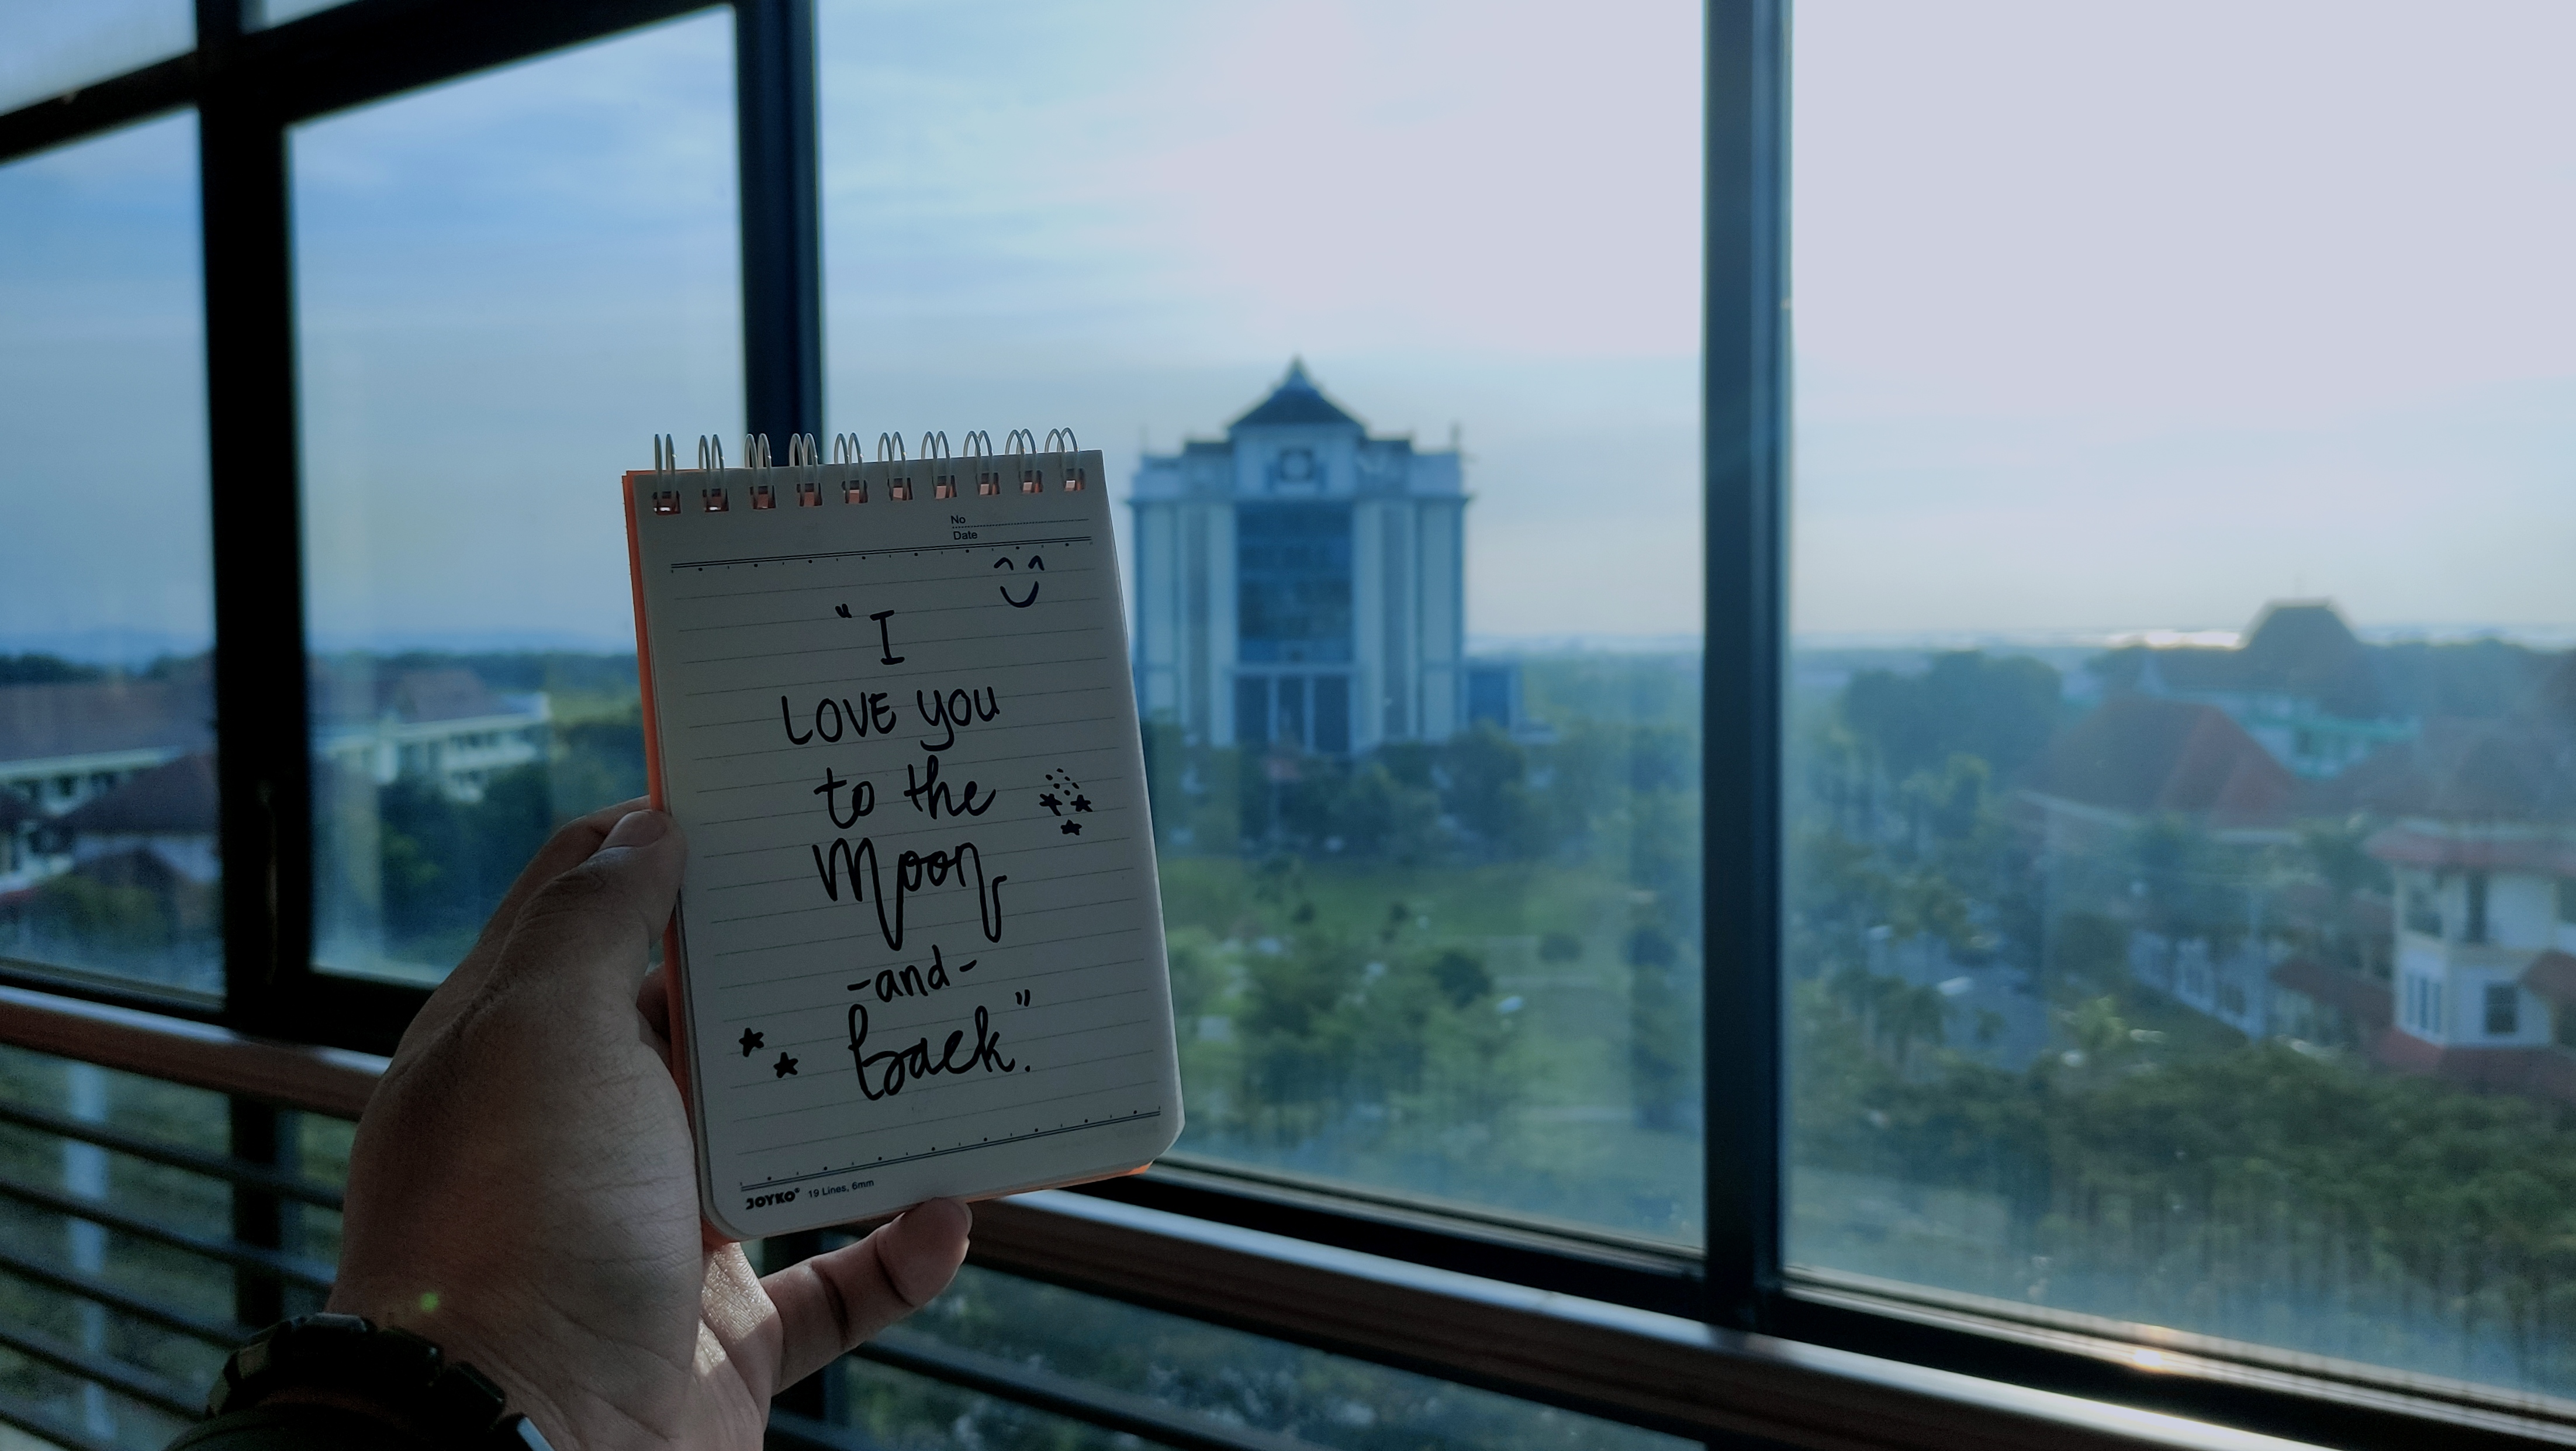 No
Date
"I
LOVE you
to the
Moon
-and-
Back."
JOYKO® 19 Lines, 6mm